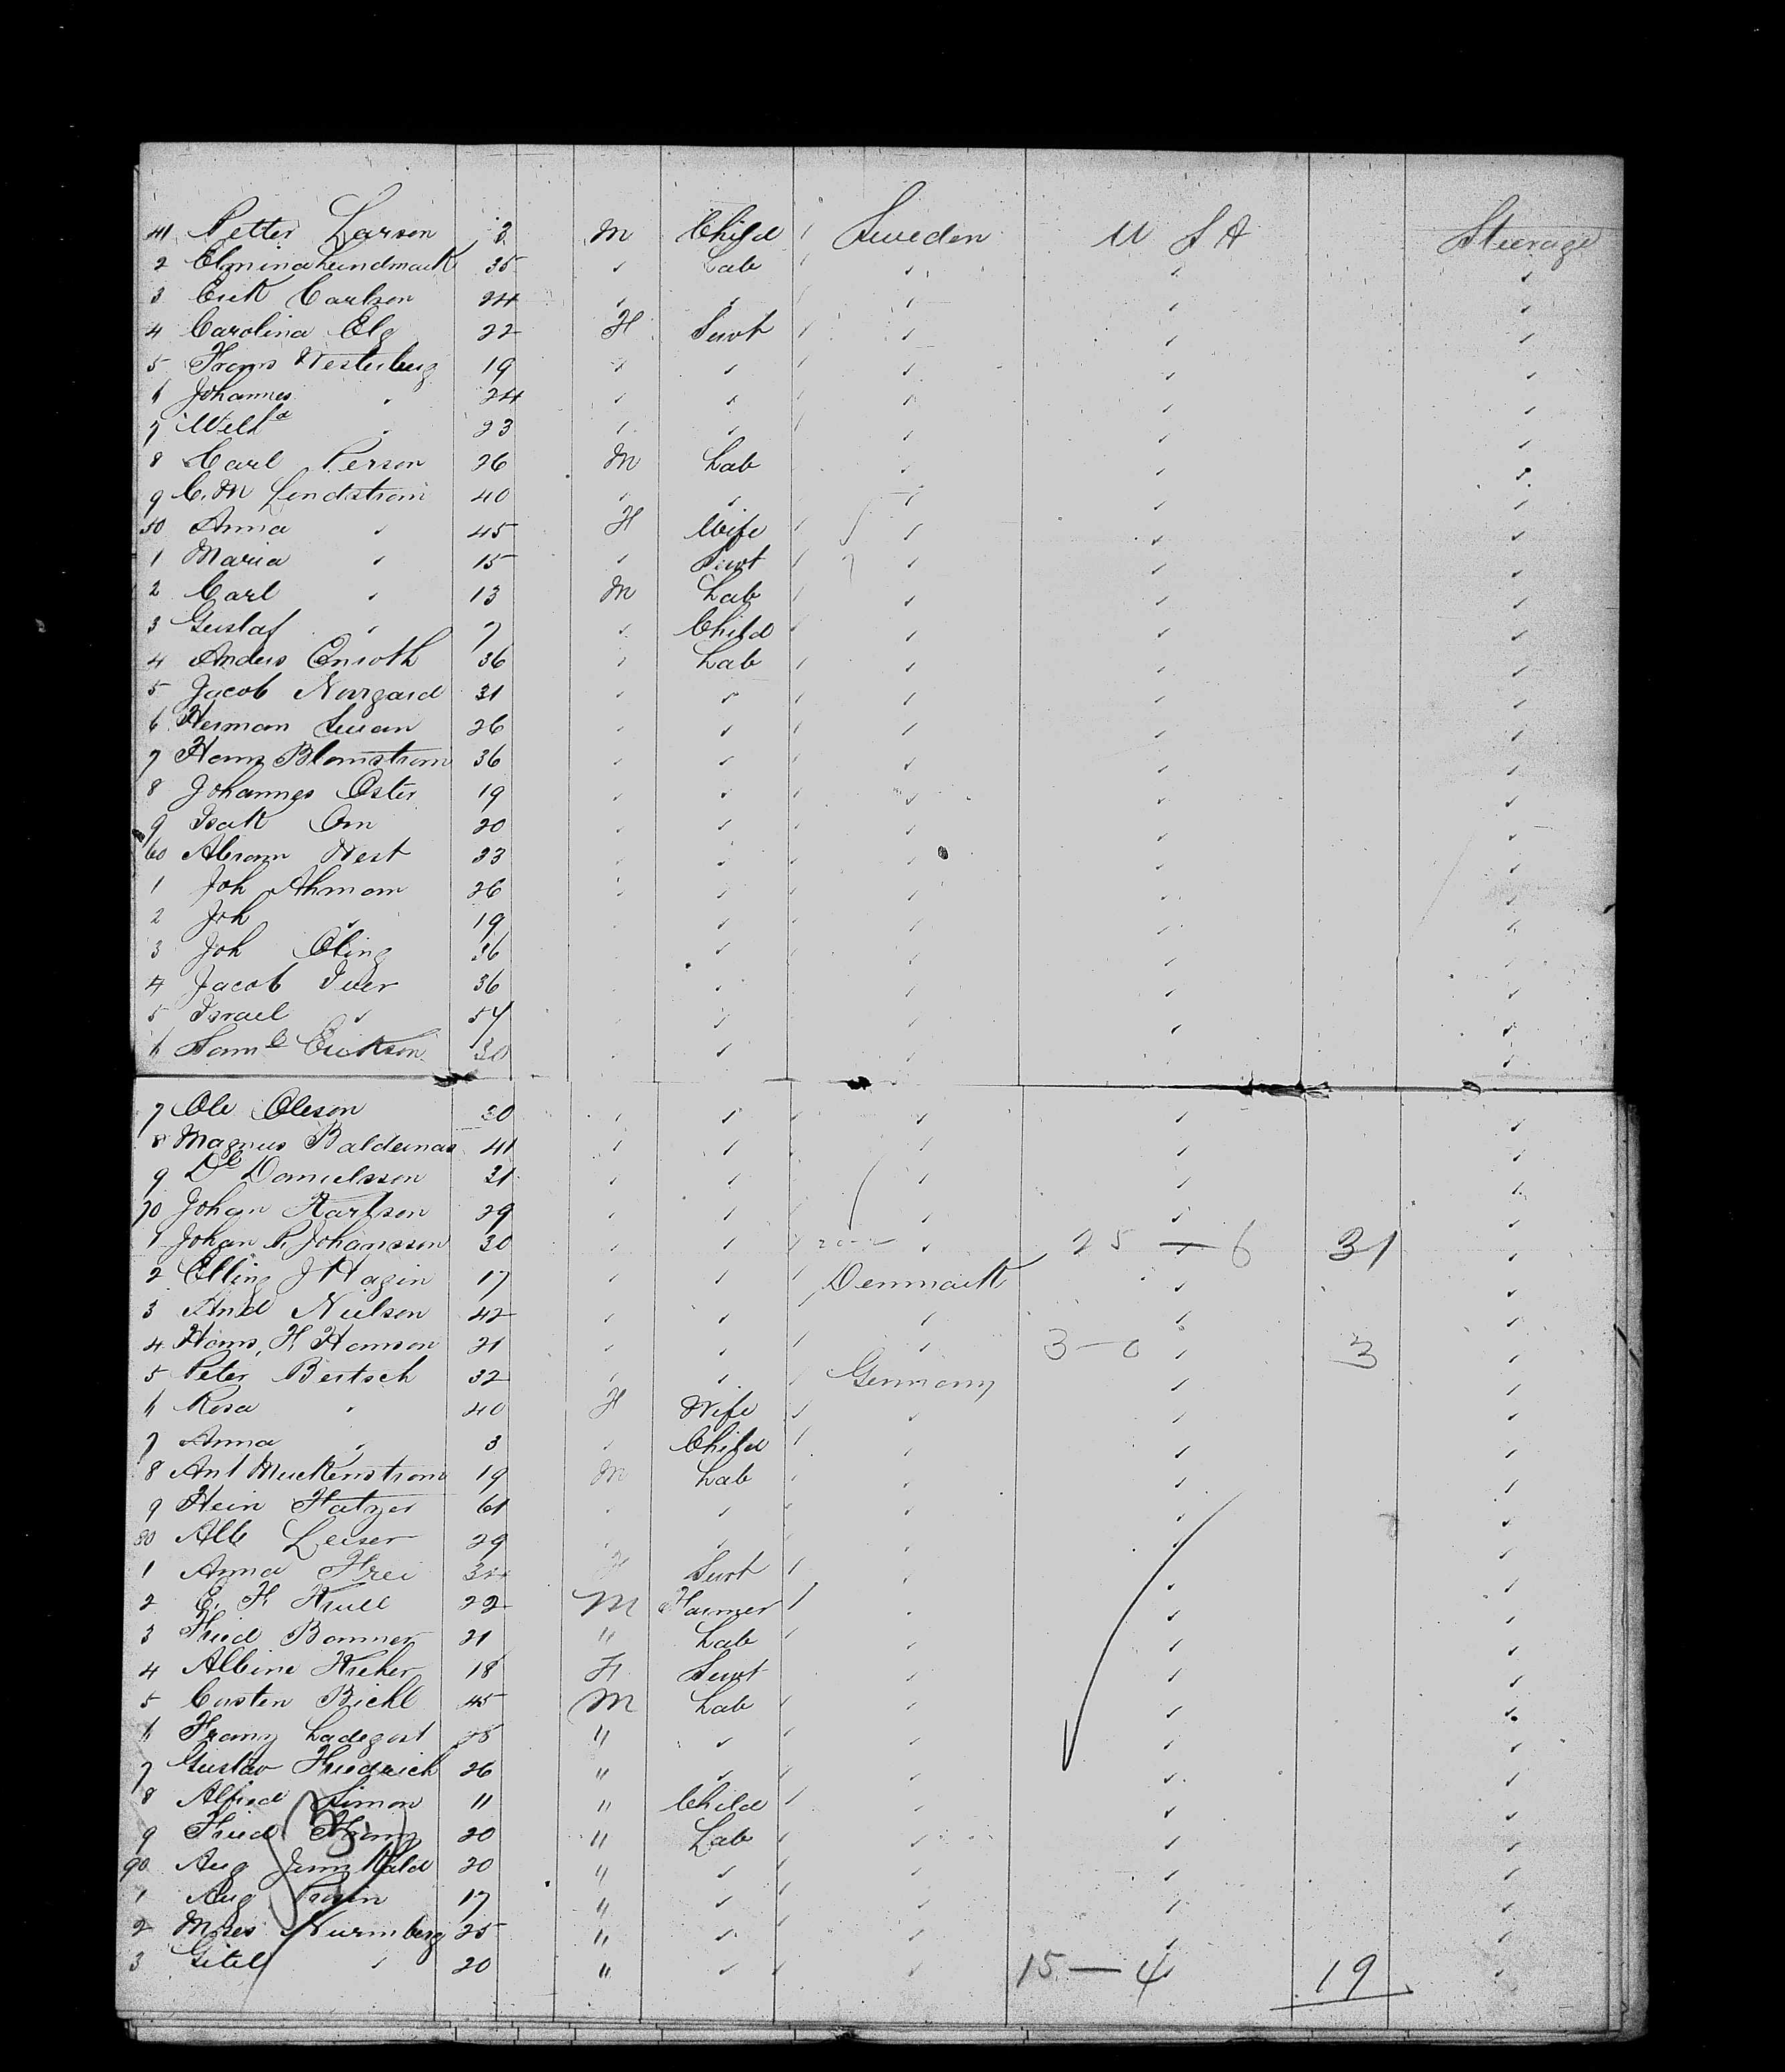 41 Petter Larson 3 M Child / Sweden U S A Steerage
2 Elmina Lundmark 35 " Lab / " " "
3 Erick Carlson 24 " " / " " "
4 Carolina Elg 22 F Servt / " " "
5 Frans Westerberg 19 " " / " " "
6 Johannes " 24 " " / " " "
7 Wilh a " 23 " " / " " "
8 Carl Person 26 M Lab " " "
9 C. M Lindstrom 40 " " " " "
50 Anna " 45 F Wife / " " "
1 Maria " 15 " Servt / " " "
2 Carl " 13 M Lab / " " "
3 Gustaf " 7 " Child / " " "
4 Anders Enroth 36 " Lab / " " "
5 Jacob Norgard 31 " " / " " "
6 Herman Suan 26 " " / " " "
7 Hans Blomstrom 36 " " / " " "
8 Johannes Oster 19 " " / " " "
9 Isak Orn 20 " " / " " "
60 Abram West 23 " " / " " "
1 Joh Ahman 26 " " / " " "
2 Joh " 19 " " / " " "
3 Joh Oling 36 " " / " " "
4 Jacob Iver 36 " " " " "
5 Israel " 54 " " " " "
6 Saml Erickson 30 " " " " "
7 Ole Oleson 30 " " / " " "
8 Magnus 41 " " / " " "
9 Danielsson 31 " " / " " "
70 Johan Karlson 29 " " / " " "
1 Johan P. Johansson 30 " " / " 25 — 6 31 "
2 Elling J Hagin 17 " " / Denmark " "
3 And Nielson 42 " " / " " "
4 Hans H Hanson 21 " " / " 3 - 0 " 3 "
5 Peter Bertsch 32 " " / Germany " "
6 Rosa " 40 F Wife / " " "
7 Anna " 3 " Child / " " "
8 Ant Muckenstrom 19 M Lab / " " "
9 Hein Hatzer 61 " " / " " "
80 Alb Leiser 29 " " / " " "
1 Anna Frei 34 F Servt / " " "
2 E. F. Krull 22 M Farmer / " " "
3 Fried Bommer 21 " Lab / " " "
4 Albine 18 F Servt " " "
5 Carsten Biehl 45 M Lab / " " "
6 Franz Ladegast 25 " " / " " "
7 Gustav Friedrich 26 " " / " " "
8 Alfred Simon 11 " Child / " " "
9 Fried Franz 20 " Lab / " " "
90 Aug 20 " " / " " "
1 Aug 17 " " / " " "
2 Moses Nurmberg 25 " " / " " "
3 Gitel " 20 " " / " 15 — 4 19 "